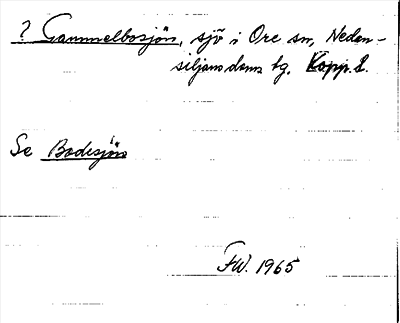 ? Gammelbosjön, sjö i Ore sn, Nedan-
siljans doms tg. Kopp. l.
Se Bodesjön
FW. 1965